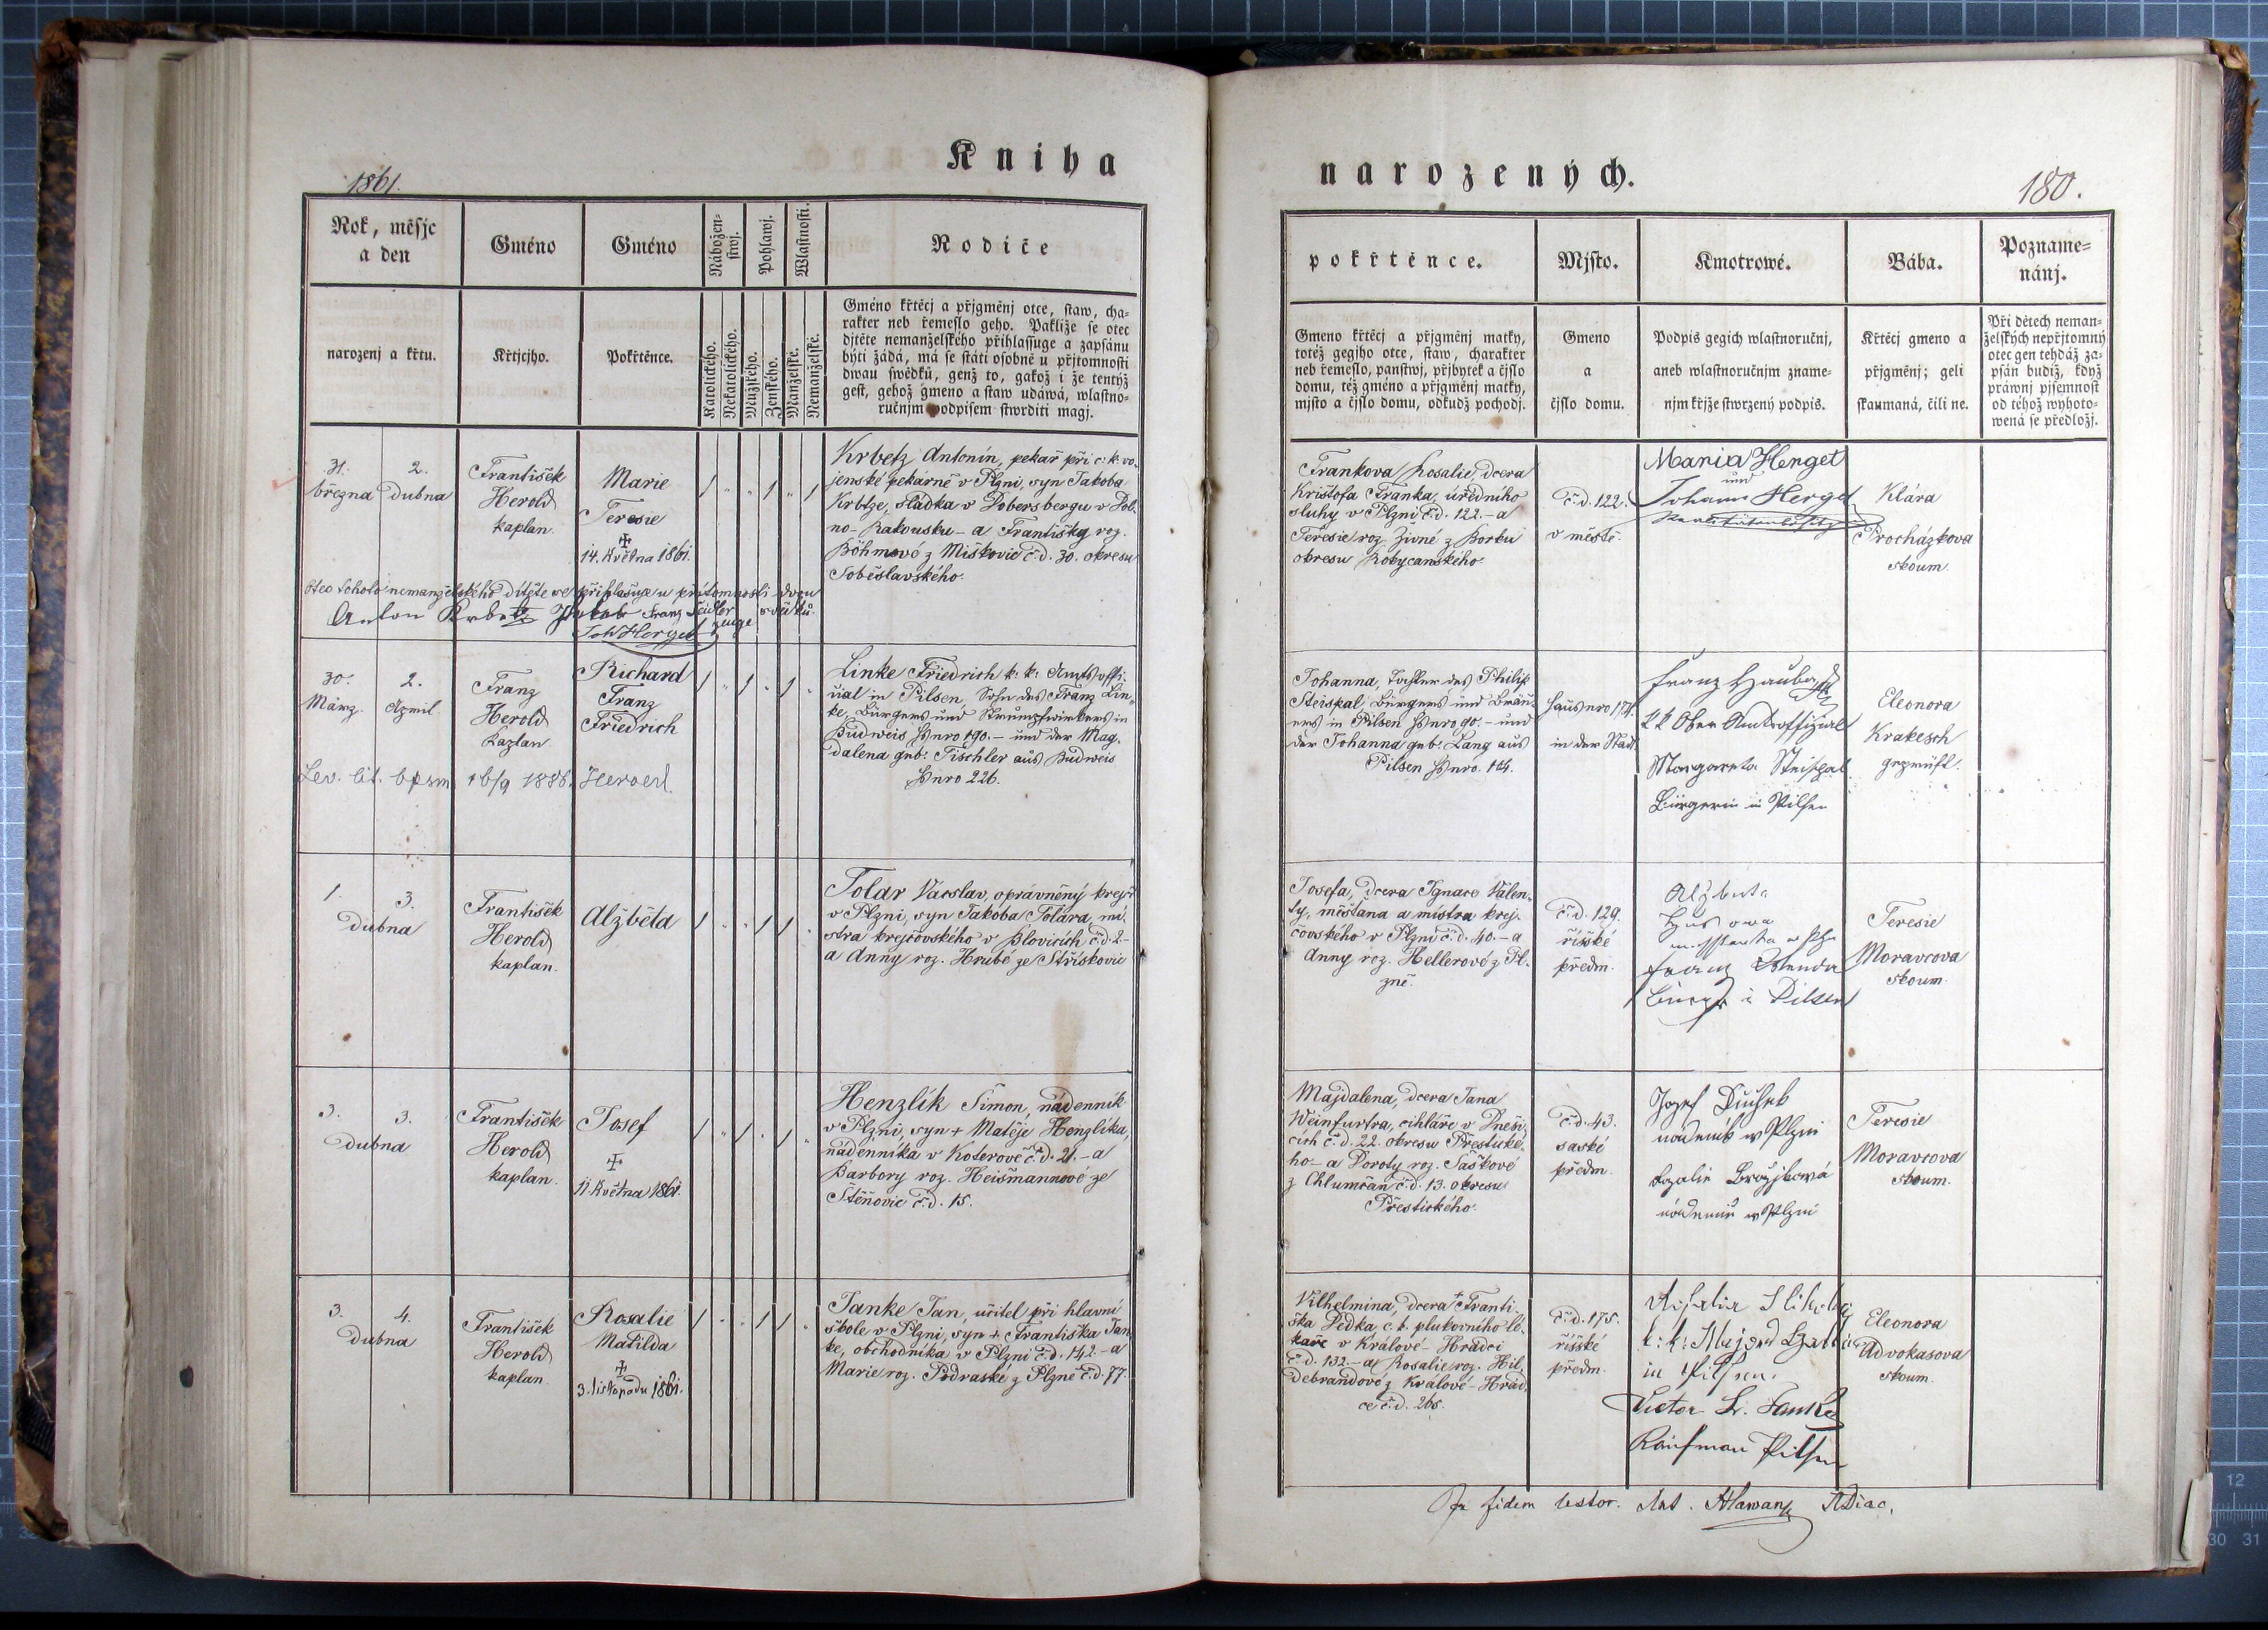 Kniha
1861.
Rok, měsjc
a den
Gméno
Gméno
Nábožen-
stwj.
Pohlawj.
Wlastnosti.
Rodiče
narozenj a křtu.
Křtjcjho.
Pokřtěnce.
Katolického.
Nekatolického.
Mužského.
Ženského.
Manželské.
Nemanželské.
Gméno křtěcj a přjgměnj otce, staw, cha-
rakter neb řemeslo geho. Pakliže se otec
djtěte nemanželského přihlassuge a zapsánu
býti žádá, má se státi osobně u přjtomnosti
dwau swědků, genž to, gakož i že tentýž
gest, gehož gmeno a staw udáwá, wlastno-
ručnjm podpisem stwrditi magj.
31. 2.
března dubna
František
Herold
kaplan.
Marie
Teresie
14. Května 1861.
Krbetz Antonín, pekař při c: k: vo-
jenské pekárně v Plzni, syn Jakoba
Krbtze, sládka v Dobersbergu v Dol.
no-Rakousku - a Františky roz.
Böhmové z Miškovic č.d. 30. okresu
Soběslavského.
Otec tohoto nemanželského dítěte se přihlašuje u přítomnosti dvou
svědků.
Anton Krbetz Franz Seidler
Joh Herget Zeuge
30. 2.
März. April.
Franz
Herold
Kaplan
Richard
Franz
Friedrich
Linke Friedrich k: k: Amtsoffi-
zial in Pilsen, Sohn des Franz Lin-
ke, Bürgers und Strumpfwirkers in
Budweis Hnro 190. - und der Mag-
dalena geb: Tischler aus Budweis
Hnro 226.
Lev. lit. bpsm 16/9 1886. Herold.
1. 3.
Dubna
František
Herold
kaplan.
Alžběta
Tolar Vácslav, oprávněný krejčí
v Plzni, syn Jakoba Tolára, mi-
stra krejčovského v Blovicích č.d. 2.-
a Anny roz. Hrubé ze Střížkovic
3. 3.
Dubna
František
Herold
kaplan.
Josef
11. Května 1861.
Henzlík Šimon, nádenník
v Plzni, syn + Matěje Henzlíka,
nádenníka v Koterově č.d. 21. - a
Barbory roz. Heišmannové ze
Štěnovic č.d. 15.
3. 4.
Dubna
František
Herold
kaplan
Rosalie
Matilda
3. listopadu 1861.
Janke Jan, učitel při hlavní
škole v Plzni, syn + Františka Jan-
ke, obchodníka v Plzni č.d. 142. - a
Marie roz. Podraské z Plzně č.d. 77.
narozených.
180.
pokřtěnce.
Mjsto.
Kmotrowé.
Bába.
Pozname-
nánj.
Gmeno křtěcj a přjgměnj matky,
totéž gegjho otce, staw, charakter
neb řemeslo, panstwj, přjbytek a čjslo
domu, též gméno a přjgměnj matky,
mjsto a čjslo domu, odkudž pochodj.
Gmeno
a
čjslo domu.
Podpis gegich wlastnoručnj,
aneb wlastnoručnjm zname-
njm křjže stwrzený podpis.
Křtěcj gmeno a
přjgměnj; geli
skaumaná, čili ne.
Při dětech neman-
želských nepřjtomný
otec gen tehdáž za-
psán budiž, když
práwnj pjsemnost
od téhož wyhoto-
wená se předložj.
Frankova Rosalie, dcera
Krištofa Franka, úředního
sluhy v Plzni č.d. 122. - a
Teresie roz. Živné z Borku
okresu Rokycanského.
č.d. 122.
v městě.
Maria Herget
und
Johann Herget
Realitätenbesitzer
Klára
Procházkova
skoum.
Johanna, Tochter des Philip
Steispal Bürgers und Bräu-
ers in Pilsen Hnro 90. - und
der Johanna geb: Lang aus
Pilsen Hnro. 104.
Hausnro 174.
in der Stadt
Franz
k k Ober Amtsoffizial
Margareta Steispal
Bürgerin in Pilsen
Eleonora
Krakesch
geprüft.
Josefa, dcera Ignace Válen-
ty, měšťana a mistra krej-
čovského v Plzni č.d. 40. - a
Anny roz. Hellerové z Pl-
zně.
č.d. 129.
říšské
předm.
Alžběta
Franz
Bürger in Pilsen
Teresie
Moravcova
skoum.
Majdalena, dcera Jana
Weinfurtra, cihláře v Dneši-
cích č.d. 22. okresu Přestické-
ho - a Doroty roz. Šaškové
z Chlumčan č.d. 13. okresu
Přestického.
č.d. 43.
saské
předm.
Jozef Duchek
nádenník w Plzni
Rozalie Brožjkowá
w Plzni
Teresie
Moravcova
skoum.
Vilhelmina, dcera + Franti-
ška Pedka c. k. plukovního lé-
kaře v Králové-Hradci
č.d. 132. - a Rosalie roz. Hil-
debrandové z Králové-Hrad-
ce č.d. 265.
č.d. 175.
říšské
předm.
Rosalia
k: k: Majors
in Pilsen.
Victor Fr. Janke
Kaufman Pilsen
Eleonora
Advokasova
skoum.
Ant. Hlawan ADiac.
12
30 31